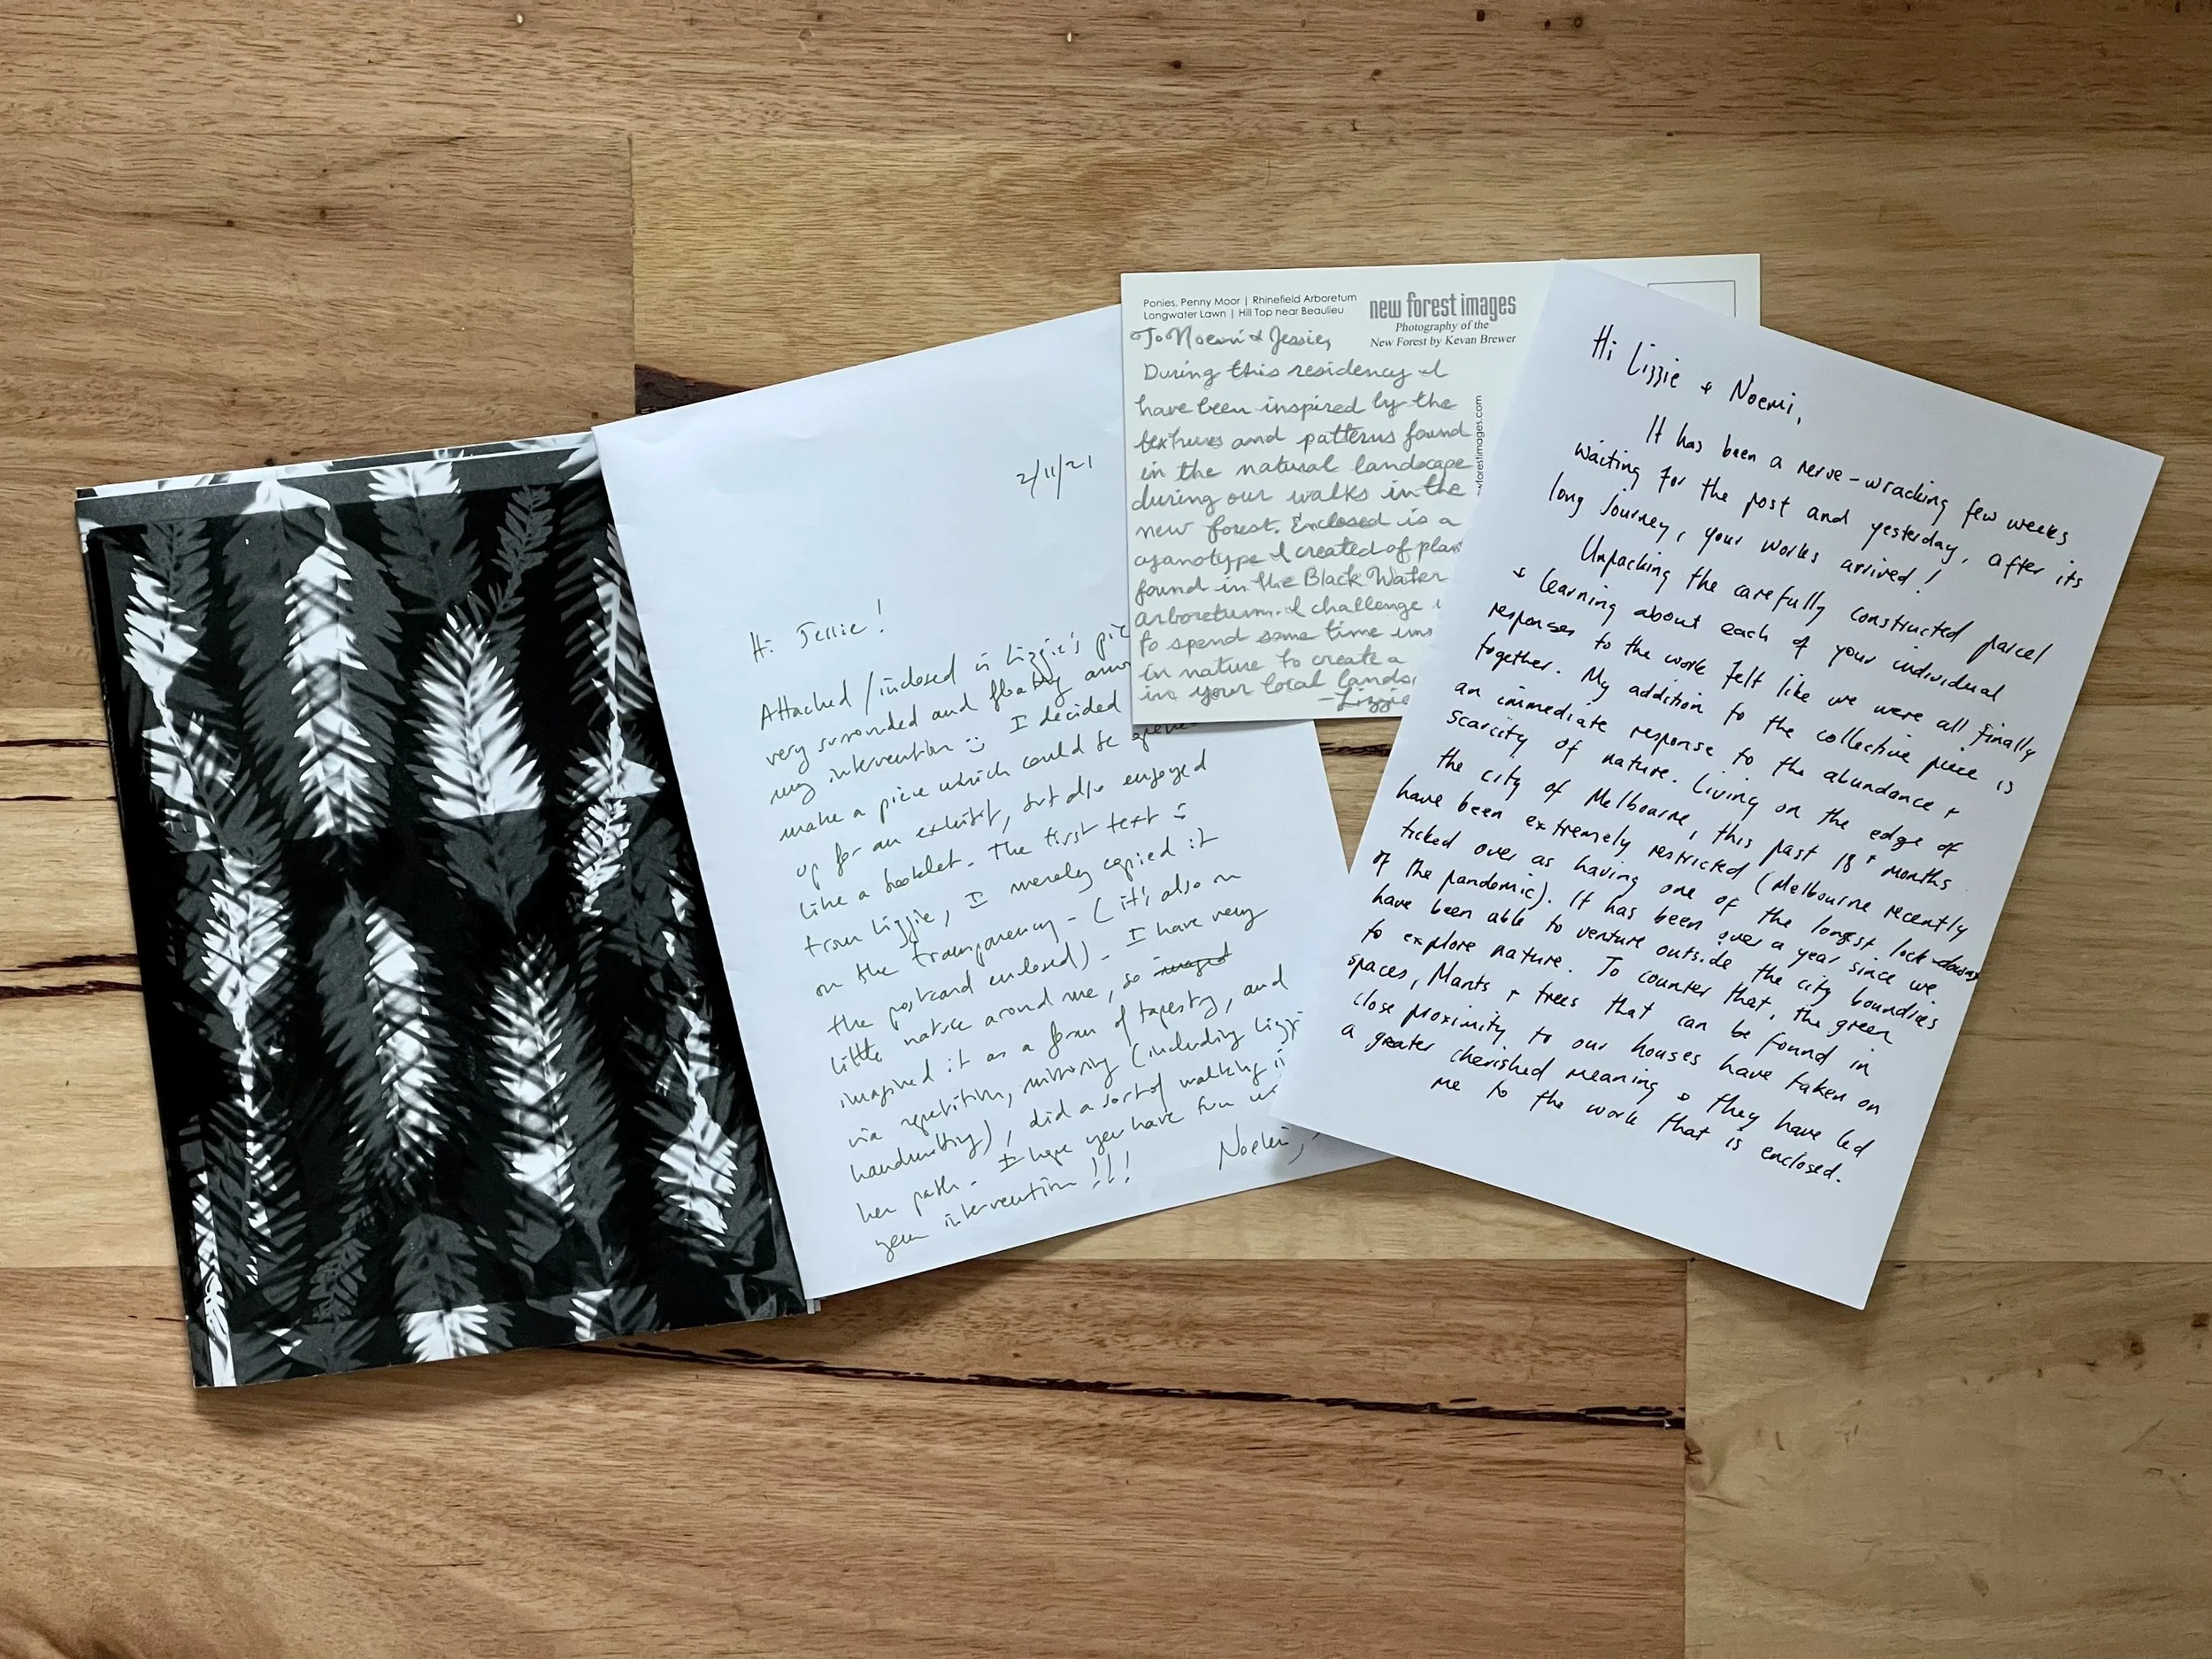 2/11/21
Hi Jessie!
Attached/inclosed is Lizzie's
very surrounded and floating
my intervention I decided
make a piece which could be
up for an exhibit, but also enjoyed
like a booklet. The first text is
from Lizzie, I merely copied it
on the transparency - (it's also on
the postcard enclosed). I have very
little nature around me, so
imagined it as a form of tapestry, and
via repetition, mirroring (including
handwriting), did a sort of walking
her path. I hope you have fun
your intervention!!!
Noemi,
Ponies, Penny Moor | Rhinefield Arboretum
Longwater Lawn | Hill Top near Beaulieu
new forest images
Photography of the
New Forest by Kevan Brewer
wforestimages.com
To Noemi & Jessie,
During this residency I
have been inspired by the
textures and patterns found
in the natural landscape
during our walks in the
new forest. Enclosed is a
cyanotype I created of
found in the Black Water
arboretum. I challenge
to spend some time
in nature to create a
in your local
-Lizzie
Hi Lizzie + Noemi,
It has been a nerve-wracking few weeks
waiting for the post and yesterday, after its
long journey, your works arrived!
Unpacking the carefully constructed parcel
+ learning about each of your individual
responses to the work felt like we were all finally
together. My addition to the collective piece is
an immediate response to the abundance +
scarcity of nature. Living on the edge of
the city of Melbourne, this past 18+ months
have been extremely restricted (Melbourne recently
ticked over as having one of the longest lock-downs
of the pandemic). It has been over a year since we
have been able to venture outside the city boundries
to explore nature. To counter that, the green
spaces, plants + trees that can be found in
close proximity to our houses have taken on
a greater cherished meaning + they have led
me to the work that is enclosed.